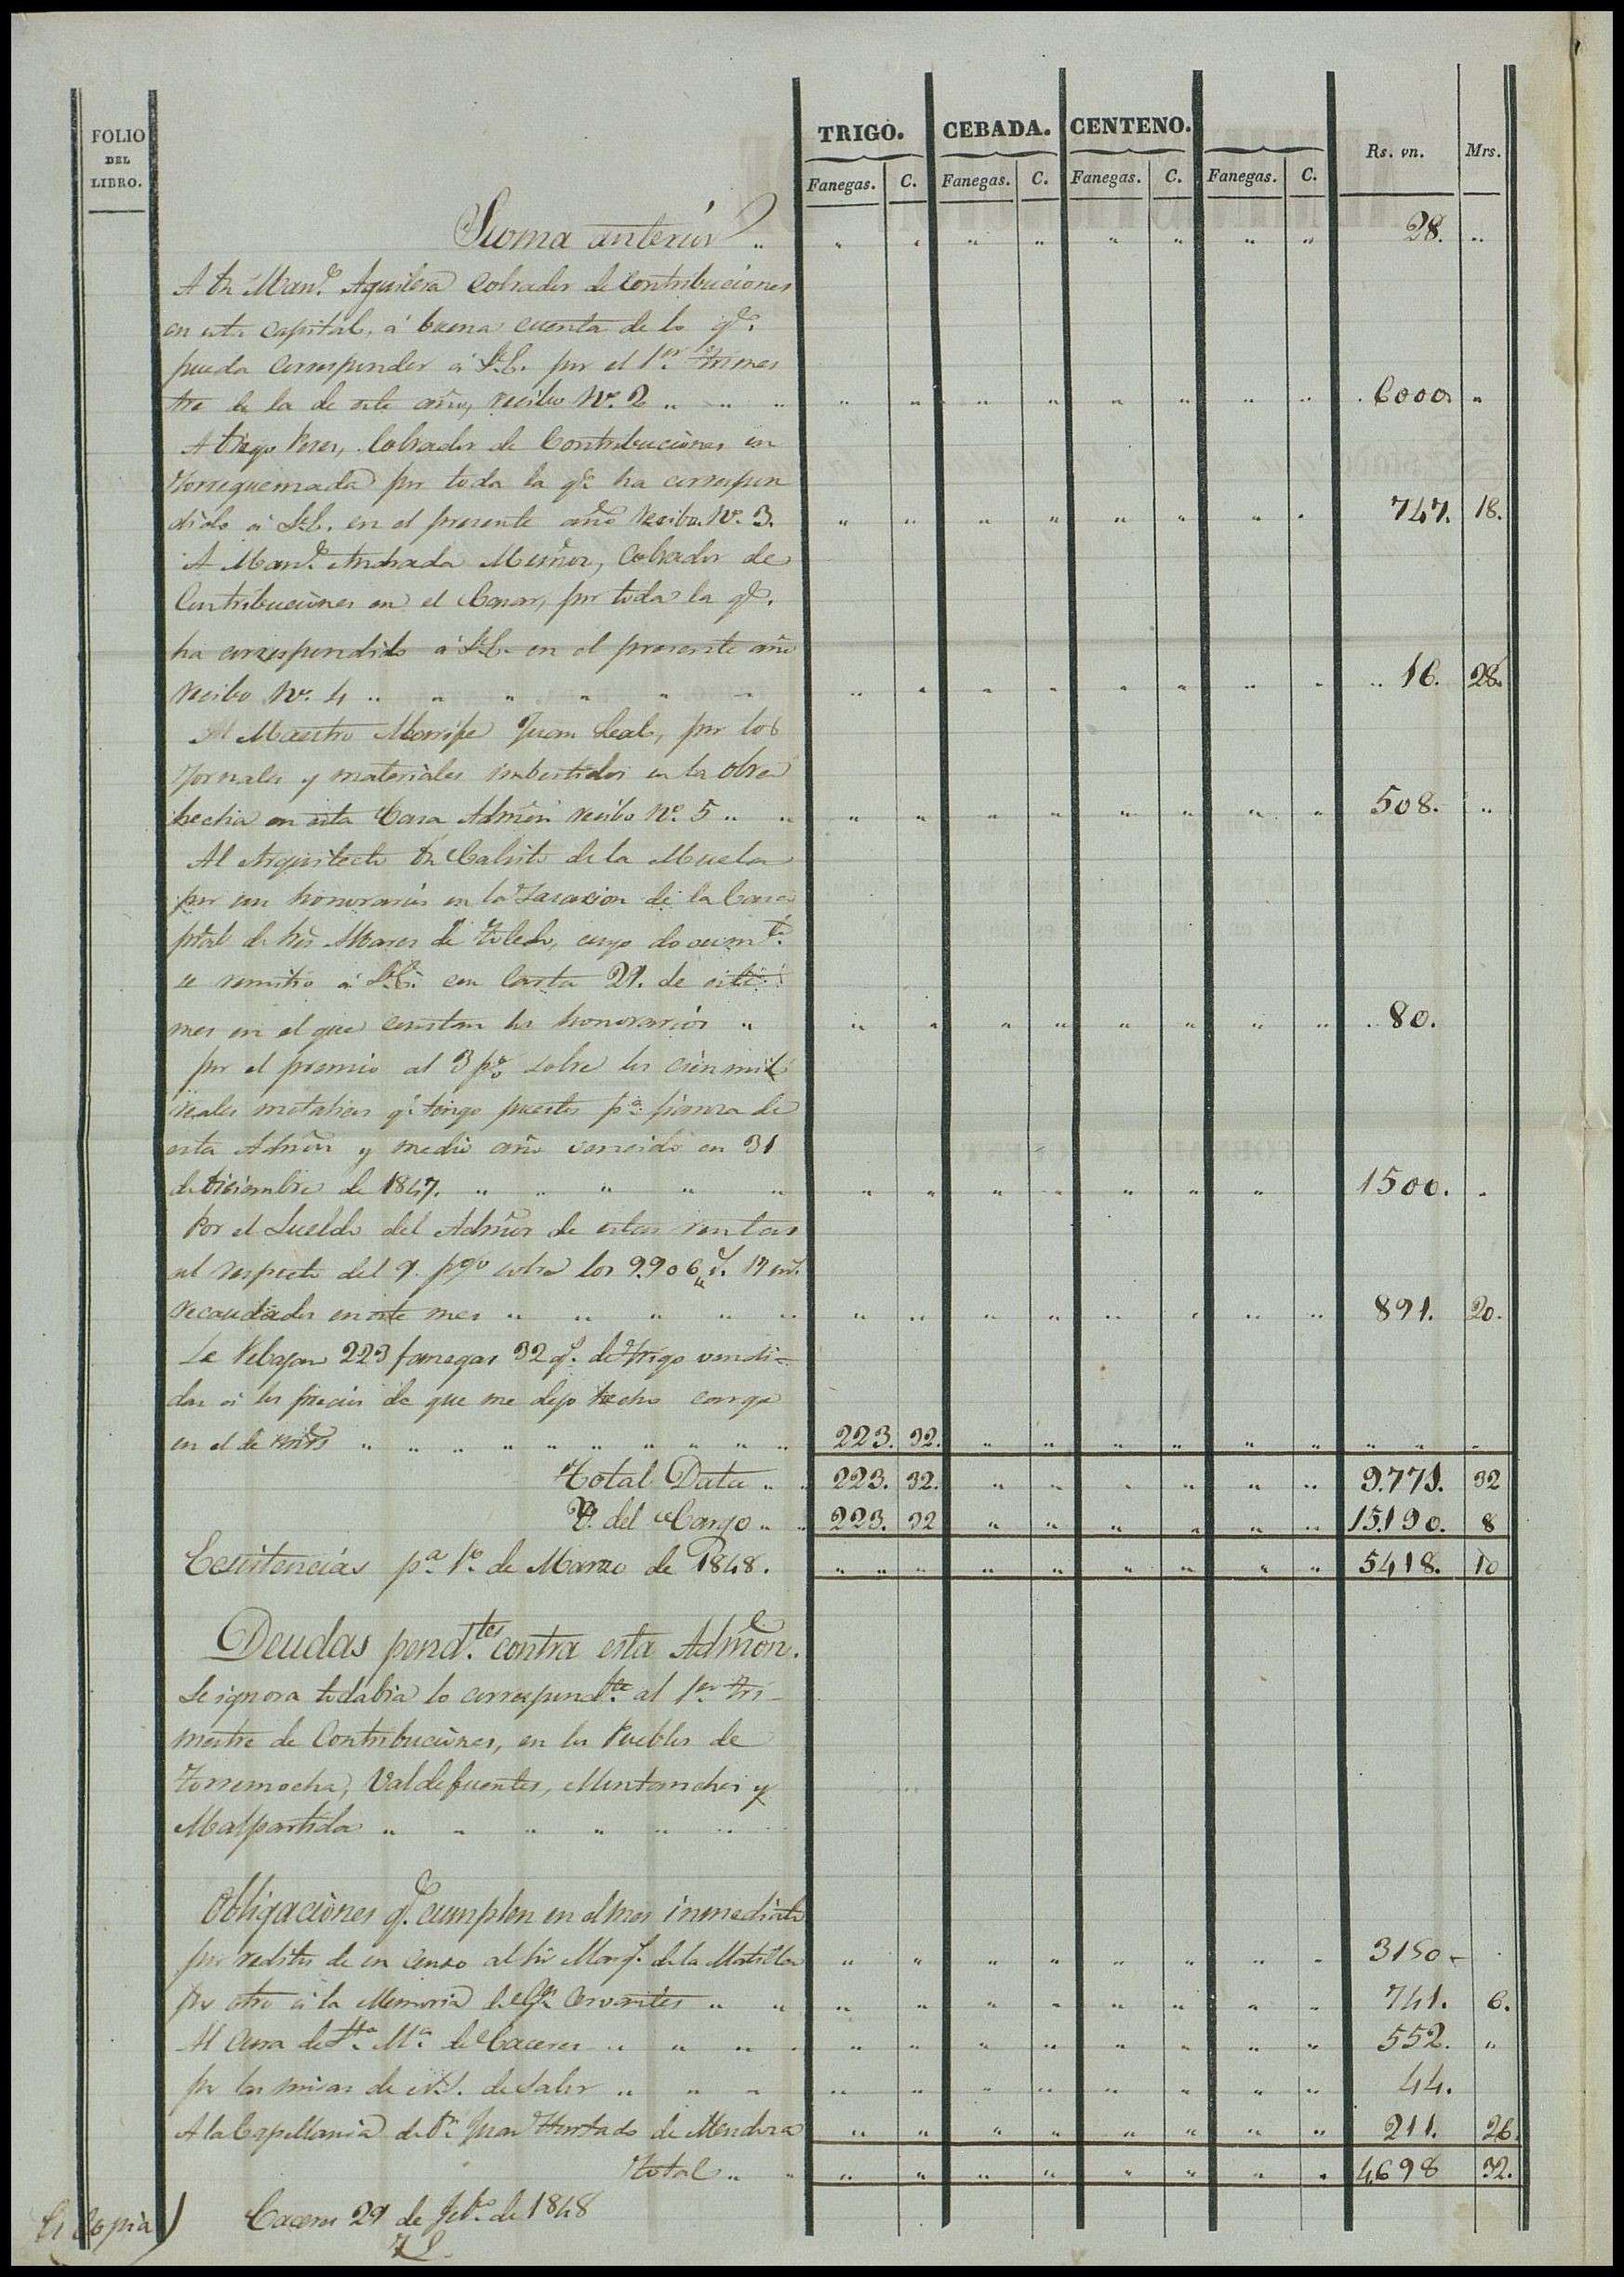 FOLIO DEL LIBRO. TRIGO. CEBADA. CENTENO. Rs. vn. Mrs.
Fanegas. C. Fanegas. C. Fanegas. C. Fanegas. C.
Suma anterior " " " " " " " " " 28. "
A Dn Manl. Aguilera Cobrador de Contribuciones
en esta capital, á buena cuenta de lo qe.
pueda corresponder á S.E. por el 1er. trimes
tre de la de este año, recibo No. 2 " " " " " " " " " " " 6000. "
A Diego Peres, Cobrador de Contribuciones en
Torrequemada por toda la qe. ha correspon
dido á S.E. en el presente año recibo No. 3. " " " " " " " " 747. 18.
A Manl. Andrada Muñoz, Cobrador de
Contribuciones en el Casar, por toda la qe.
ha correspondido á S.E. en el presente año
recibo No. 4 " " " " " " " " " " " " " " 16. 28.
Al Maestro Alarife Juan Leal, por los
Jornales y materiales imbertidos en la obra
hecha en esta Casa Admon recibo No. 5 " " " " " " " " " " 508. "
Al Arquitecto Dn Calisto de la Muela
por sus honorarios en la tasacion de la Casa
de Toledo, cuyo documto.
se remitió á S.E. con Carta 21. de este
mes en el que constan los honorarios " " " " " " " " " 80.
por el premio al 3 p% sobre los cien mil
reales metalicos qe. tengo puestos pa. fianza de
esta Admon y medio año vencido en 31
de Diciembre de 1847. " " " " " " " " " " " " 1500. "
Por el Sueldo del Admor de estas rentas
al respecto del 9. p% sobre los 9.906 rs. 17 ms.
recaudados en este mes " " " " " " " " " " " " " 891. 20.
Se Rebajan 223 fanegas 32 qs. de trigo vendi-
das á los precios de que me dejo hecho cargo
en el de mrs " " " " " " " " " " 223. 32. " " " " " " " " "
Total Data " " 223. 32. " " " " " " 9.771. 32
Yd. del Cargo " " 223. 32 " " " " " " 15.190. 8
Ecsistencias pa. 1o. de Marzo de 1848. " " " " " " " " " 5418. 10
Deudas pendtes. contra esta Admon.
Se ignora todabia lo correspondte. al 1er. tri-
mestre de Contribuciones, en los Pueblos de
Torremocha, Valdefuentes, Montanches y
Malpartida " " " " " "
Obligaciones qe. cumplen en el mes inmediato
por reditos de un censo al Sr. Marqs. de la Matilla " " " " " " " " 3150 -
por otro á la Memoria de Cervantes " " " " " " " " " " 741. 6.
Al Cura de Sta. Ma. de Caceres " " " " " " " " " " " " 552. "
por las misas de N.S. de Salor " " " " " " " " " " " 44.
A la Capellania de Dn. Juan Hurtado de Mendoza " " " " " " " " 211. 26.
Total " " " " " " " " " " 4,698 32.
Caceres 29 de Febo. de 1848
Es Copia